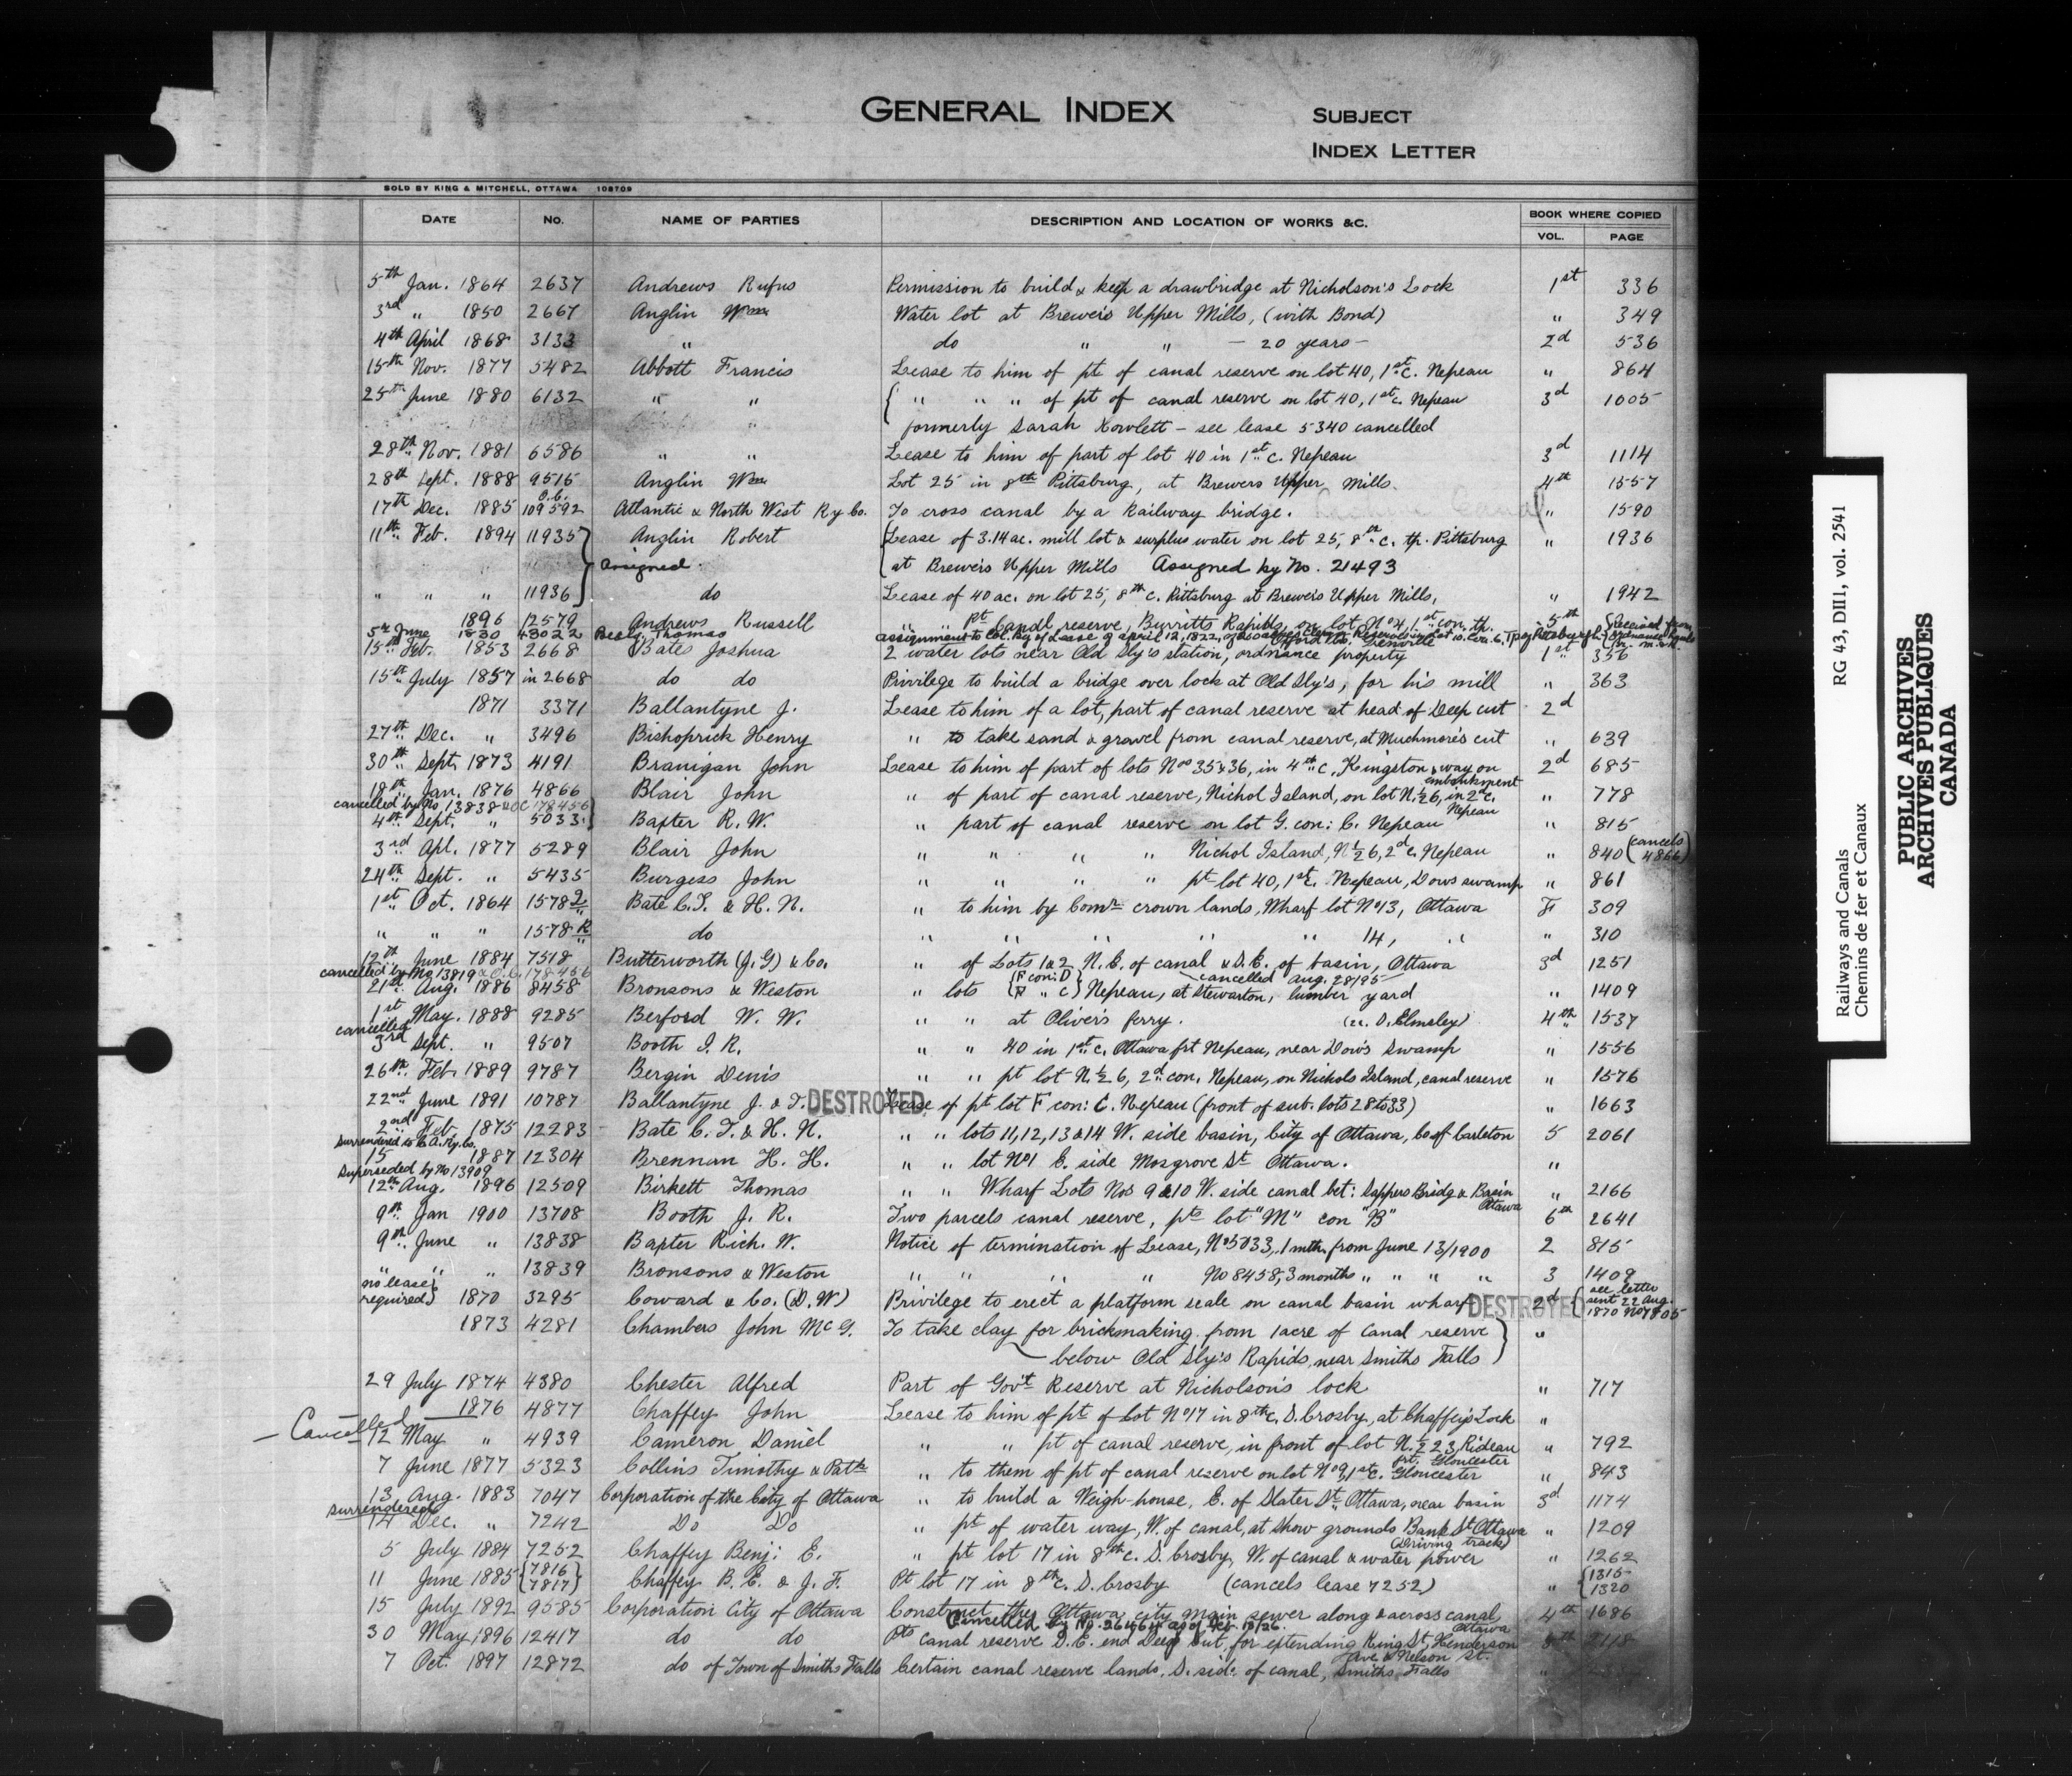 GENERAL INDEX
SUBJECT
INDEX LETTER
SOLD BY KING & MITCHELL, OTTAWA 108709
DATE No. NAME OF PARTIES DESCRIPTION AND LOCATION OF WORKS &C. BOOK WHERE COPIED
VOL. PAGE
5th Jan. 1864 2637 Andrews Rufus Permission to build & keep a drawbridge at Nicholson's Lock 1st 336
3rd " 1850 2667 Anglin Wm Water lot at Brewer's Upper Mills, (with Bond) " 349
4th April 1868 3133 " do " " - 20 years - 2d 536
15th Nov. 1877 5482 Abbott Francis Lease to him of pt of canal reserve on lot 40, 1st c. Nepean " 864
25th June 1880 6132 " " { " " " of pt of canal reserve on lot 40, 1st c. Nepean 3d 1005
formerly Sarah Howlett - see lease 5340 cancelled
28th Nov. 1881 6586 " " Lease to him of part of lot 40 in 1st c. Nepean 3d 1114
28th Sept. 1888 9515 Anglin Wm Lot 25 in 8th Pittsburg, at Brewers Upper Mills. 4th 1557
17th Dec. 1885 O.C. 109592 Atlantic & North West Ry Co. To cross canal by a Railway bridge. " 1590
11th Feb. 1894 11935 Anglin Robert {Lease of 3.14 ac. mill lot & surplus water on lot 25, 8th c. tp. Pittsburg " 1936
Assigned. at Brewer's Upper Mills Assigned by No. 21493
" " " 11936 do Lease of 40 ac. on lot 25, 8th c. Pittsburg at Brewer's Upper Mills, " 1942
1896 12579 Andrews Russell " " Pt Canal reserve, Burritts Rapids, on lot No 4, 1st con. th. 5th
5th June 1830 43022 Thomas assignment to Col. By of Lease of April 12, 1822, of
15th Feb. 1853 2668 Bates Joshua 2 water lots near Old Sly's station, ordnance property 1st 356
15th July 1857 in 2668 do do Privilege to build a bridge over lock at Old Sly's, for his mill " 363
1871 3371 Ballantyne J. Lease to him of a lot, part of canal reserve at head of Deep cut 2d
27th Dec. " 3496 Bishoprick Henry " to take sand & gravel from canal reserve, at Muchmore's cut " 639
30th Sept. 1873 4191 Branigan John Lease to him of part of lots Nos 35 & 36, in 4th c. Kingston & way on 2d 685
embankment
18th Jan. 1876 4866 Blair John " of part of canal reserve, Nichol Island, on lot N.½ 6, in 2d c. " 778
Nepean
cancelled by No 13838 & OC 178456
4th Sept. " 5033 Baxter R. W. " part of canal reserve on lot G. con: C. Nepean " 815
3rd Apl. 1877 5289 Blair John " " " " Nichol Island, N½ 6, 2d c. Nepean " 840 (cancels 4866)
24th Sept. " 5435 Burgess John " " " " pt lot 40, 1st c. Nepean, Dows swamp " 861
1st Oct. 1864 1578 Q Bate C. T. & H. N. " to him by Comr crown lands, Wharf lot No 13, Ottawa F 309
" " " 1578 R do " " " " " 14, " " 310
12th June 1884 7518 Butterworth (J. G) & Co. " of Lots 1 & 2 N. E. of canal & S. E. of basin, Ottawa 3d 1251
cancelled by No 13819 & O.C. 178456 cancelled Aug. 28/95
21st Aug. 1886 8458 Bronsons & Weston " lots {F con: D " C} Nepean, at Stewarton, lumber yard " 1409
1st May. 1888 9285 Berford W. W. " " at Oliver's ferry. (in S. Elmsley) 4th 1537
cancelled
3rd Sept. " 9507 Booth J. R. " " 40 in 1st c. Ottawa frt Nepean, near Dow's Swamp " 1556
26th Feb. 1889 9787 Bergin Denis " " pt lot N.½ 6, 2d con. Nepean, on Nichols Island, canal reserve " 1576
22nd June 1891 10787 Ballantyne J. & T. DESTROYED Lease of pt lot F con: C. Nepean (front of sub. lots 28 to 33) " 1663
2nd Feb. 1875 12283 Bate C. T. & H. N. " " lots 11, 12, 13 & 14 W. side basin, City of Ottawa, Co of Carleton 5 2061
Surrendered to C. A. Ry. Co.
15 1887 12304 Brennan H. H. " " lot No 1 E. side Mosgrove St Ottawa. "
Superseded by No 13909
12th Aug. 1896 12509 Birkett Thomas " " Wharf Lots Nos 9 & 10 W. side canal bet: Sappers Bridg & Basin " 2166
Ottawa
9th Jan 1900 13708 Booth J. R. Two parcels canal reserve, pts lot "M" con "B" 6th 2641
9th June " 13838 Baxter Rich. W. Notice of termination of Lease, No 5033, 1 mth. from June 13/1900 2 815
" " " 13839 Bronsons & Weston " " " " No 8458, 3 months " " " " 3 1409
no lease required} 1870 3295 Coward & Co. (D. W) Privilege to erect a platform scale on canal basin wharf DESTROYED 2d {see letter sent 22 Aug. 1870 No 7805
1873 4281 Chambers John McG. To take clay for brickmaking from 1 acre of canal reserve "
below Old Sly's Rapids, near Smiths Falls
29 July 1874 4380 Chester Alfred Part of Gov't Reserve at Nicholson's lock " 717
1876 4877 Chaffey John Lease to him of pt of Lot No 17 in 8th c. S. Crosby, at Chaffey's Lock "
Cancelled
12 May " 4939 Cameron Daniel " " pt of canal reserve, in front of lot N.½ 23, Rideau " 792
frt. Gloucester
7 June 1877 5323 Collins Timothy & Patk " to them of pt of canal reserve on lot No 9, 1st c. Gloucester " 843
13 Aug. 1883 7047 Corporation of the City of Ottawa " to build a Weigh-house, E. of Slater St. Ottawa, near basin 3d 1174
surrendered
14 Dec. " 7242 Do Do " pt of water way, W. of canal, at show grounds Bank St Ottawa " 1209
(driving track)
5 July 1884 7252 Chaffey Benj: E. " pt lot 17 in 8th c. S. Crosby, W. of canal & water power " 1262
11 June 1885 {7816 7817} Chaffey B. E. & J. F. Pt lot 17 in 8th c. S. Crosby (cancels lease 7252) " {1315 1320
15 July 1892 9585 Corporation City of Ottawa Construct the Ottawa city main sewer along & across canal 4th 1686
Cancelled by No. 26464 Ottawa
30 May 1896 12417 do do Pts canal reserve S. E. end Deep Cut, for extending King St, Henderson 5th 2118
Ave & Nelson St.
7 Oct. 1897 12872 do of Town of Smiths Falls Certain canal reserve lands, S. side of canal, Smiths Falls "
RG 43, DII1, vol. 2541
Railways and Canals
Chemins de fer et Canaux
PUBLIC ARCHIVES
ARCHIVES PUBLIQUES
CANADA